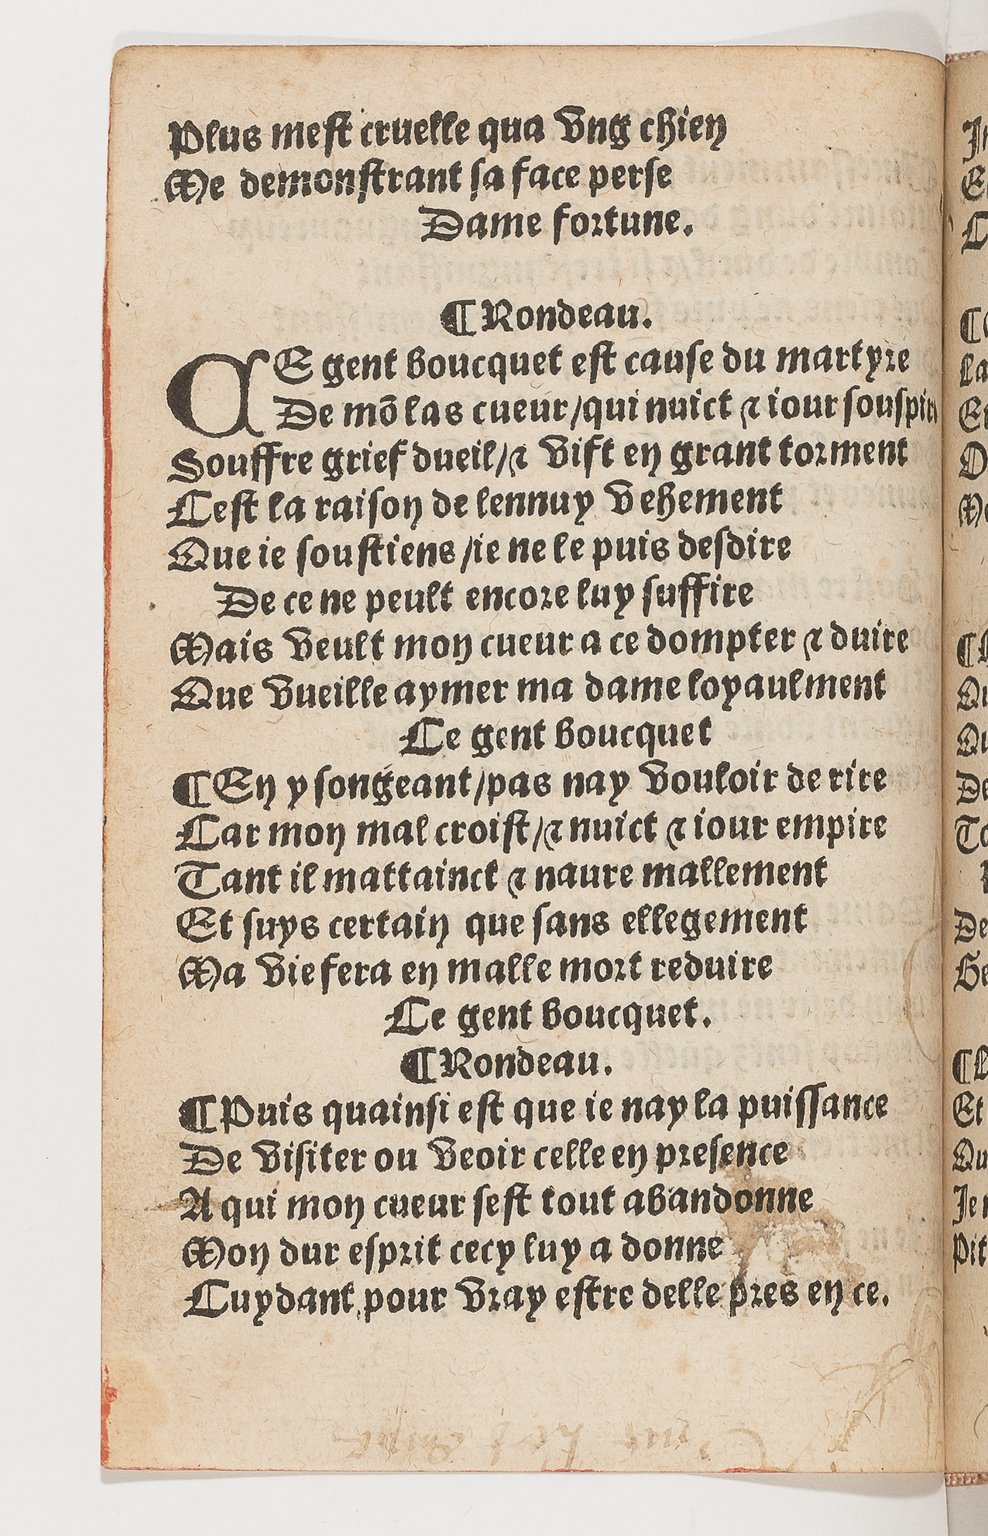 Plus mest cruelle qua vng chien
Me demonstrant sa face perse
Dame fortune.
¶Rondeau.
CE gent boucquet est cause du martyre
De mõ las cueur/qui nuict ⁊ iour souspire
Souffre grief dueil/⁊ vist en grant torment
Cest la raison de lennuy vehement
Que ie soustiens/ie ne le puis desdire
De ce ne peult encore luy suffire
Mais veult mon cueur a ce dompter ⁊ duire
Que vueille aymer ma dame loyaulment
Ce gent boucquet
¶En y songeant/pas nay vouloir de rire
Car mon mal croist/⁊ nuict ⁊ iour empire
Tant il mattainct ⁊ naure mallement
Et suys certain que sans ellegement
Ma vie fera en malle mort reduire
Ce gent boucquet.
¶Rondeau.
¶Puis quainsi est que ie nay la puissance
De visiter ou veoir celle en presence
A qui mon cueur sest tout abandonne
Mon dur esprit cecy luy a donne
Cuydant pour vray estre delle pres en ce.